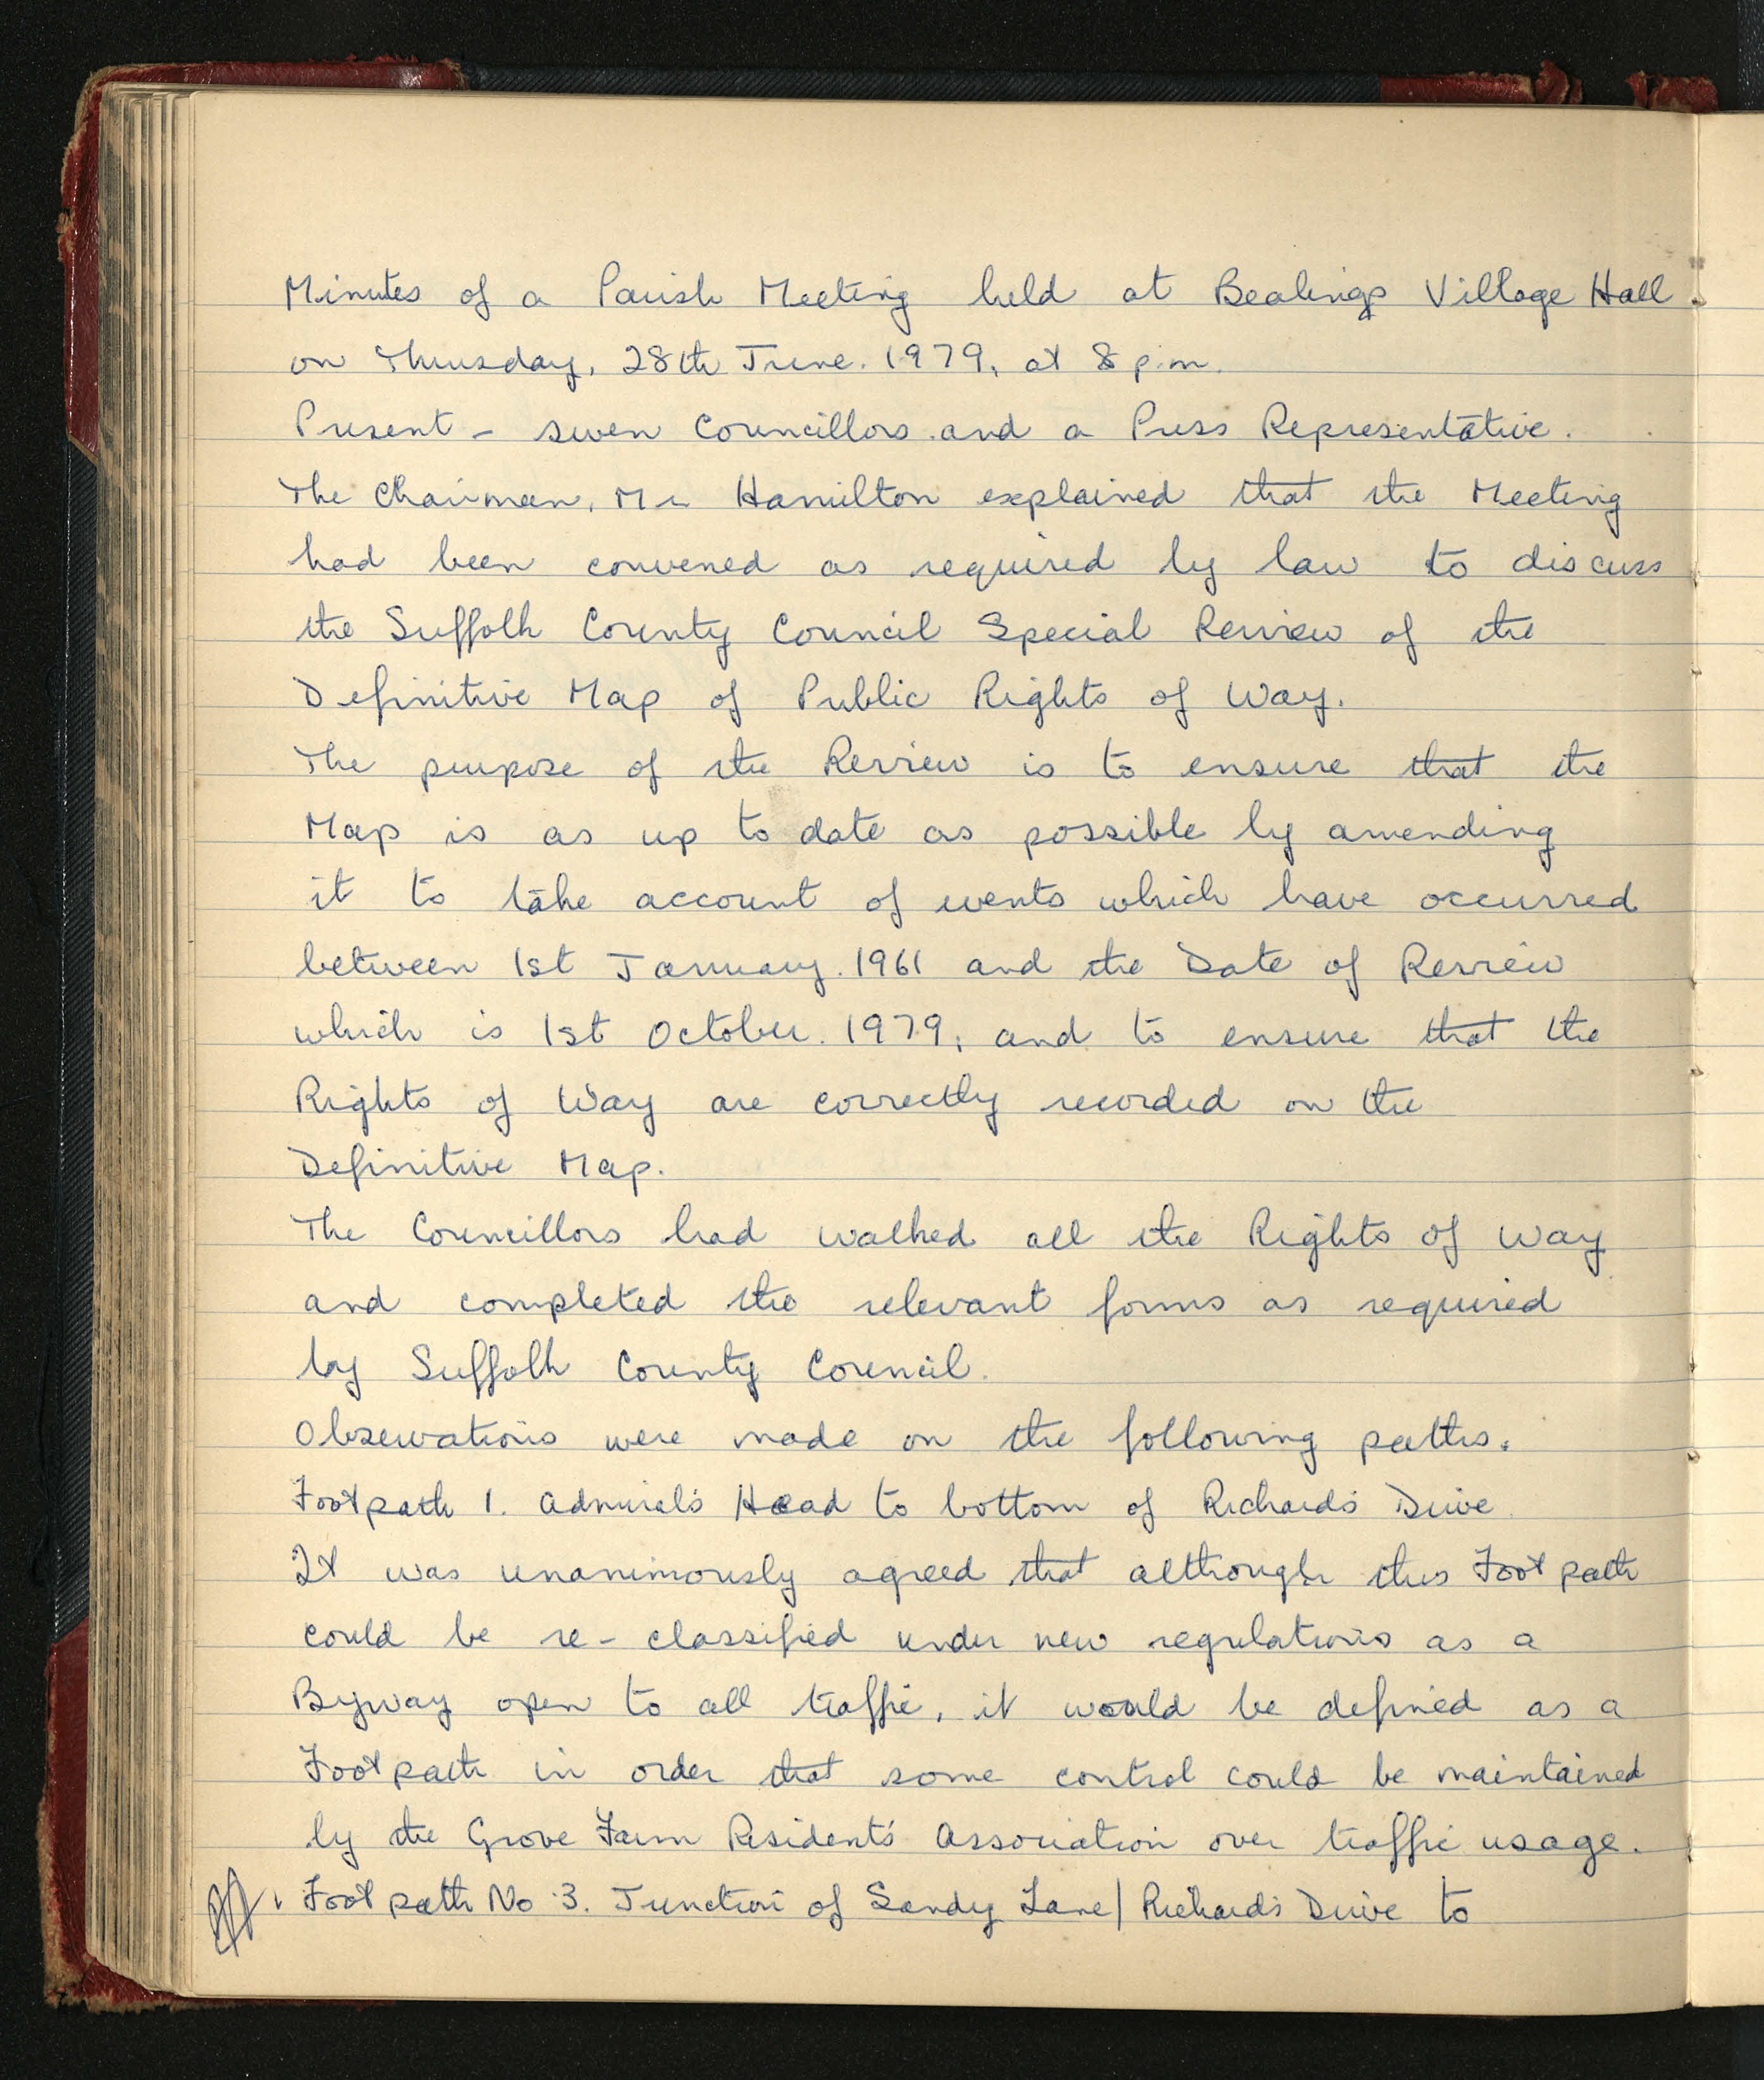 Minutes of a Parish Meeting held at Bealings Village Hall
on Thursday, 28th June. 1979, at 8 p.m.
Present - seven Councillors and a Press Representative.
The Chairman, Mr Hamilton explained that the Meeting
had been convened as required by law to discuss
the Suffolk County Council Special Review of the
Definitive Map of Public Rights of Way.
The purpose of the Review is to ensure that the
Map is as up to date as possible by amending
it to take account of events which have occurred
between 1st January. 1961 and the Date of Review
which is 1st October. 1979, and to ensure that the
Rights of Way are correctly recorded on the
Definitive Map.
The Councillors had walked all the Rights of Way
and completed the relevant forms as required
by Suffolk County Council.
Observations were made on the following paths.
Footpath 1. Admiral's Head to bottom of Richards Drive
It was unanimously agreed that although this Footpath
could be re-classified under new regulations as a
Byway open to all traffic, it would be defined as a
Footpath in order that some control could be maintained
by the Grove Farm Resident's Association over traffic usage.
Footpath No 3. Junction of Sandy Lane/Richards Drive to